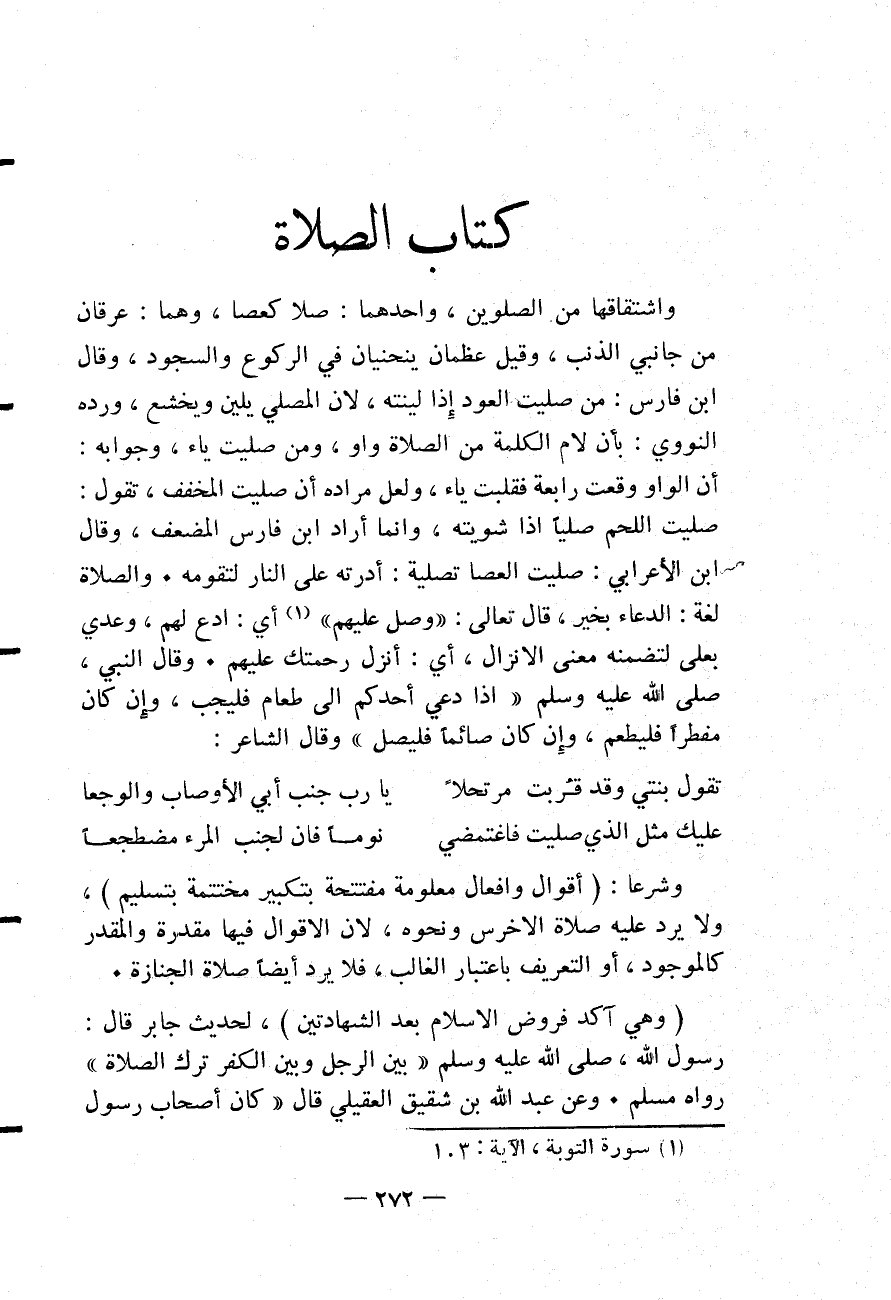 كتاب الصلاة
واشتقاقها من الصلوين ، واحدهما : صلا كعصا ، وهما : عرقان
من جانبي الذنب ، وقيل عظمان ينحنيان في الركوع والسجود ، وقال
ابن فارس : من صليت العود إذا لينته ، لان المصلي يلين ويخشع ، ورده
النووي : بأن لام الكلمة من الصلاة واو ، ومن صليت ياء ، وجوابه :
أن الواو وقعت رابعة فقلبت ياء ، ولعل مراده أن صليت المخفف ، تقول :
صليت اللحم صلياً اذا شويته ، وانما أراد ابن فارس المضعف ، وقال
ابن الأعرابي : صليت العصا تصلية : أدرته على النار لتقومه • والصلاة
لغة : الدعاء بخير ، قال تعالى : «وصل عليهم» (١) أي : ادع لهم ، وعدي
بعلى لتضمنه معنى الانزال ، أي : أنزل رحمتك عليهم • وقال النبي ،
صلى الله عليه وسلم « اذا دعي أحدكم الى طعام فليجب ، وإن كان
مفطراً فليطعم ، وإن كان صائماً فليصل » وقال الشاعر :
تقول بنتي وقد قرّبت مرتحلاً يا رب جنب أبي الأوصاب والوجعا
عليك مثل الذي صليت فاغتمضي نومــاً فان لجنب المرء مضطجعــاً
وشرعا : ( أقوال وافعال معلومة مفتتحة بتكبير مختتمة بتسليم ) ،
ولا يرد عليه صلاة الاخرس ونحوه ، لان الاقوال فيها مقدرة والمقدر
كالموجود ، أو التعريف باعتبار الغالب ، فلا يرد أيضاً صلاة الجنازة •
( وهي آكد فروض الاسلام بعد الشهادتين ) ، لحديث جابر قال :
رسول الله ، صلى الله عليه وسلم « بين الرجل وبين الكفر ترك الصلاة »
رواه مسلم • وعن عبد الله بن شقيق العقيلي قال « كان أصحاب رسول
(١) سورة التوبة ، الآية : ١٠٣
— ٢٧٢ —